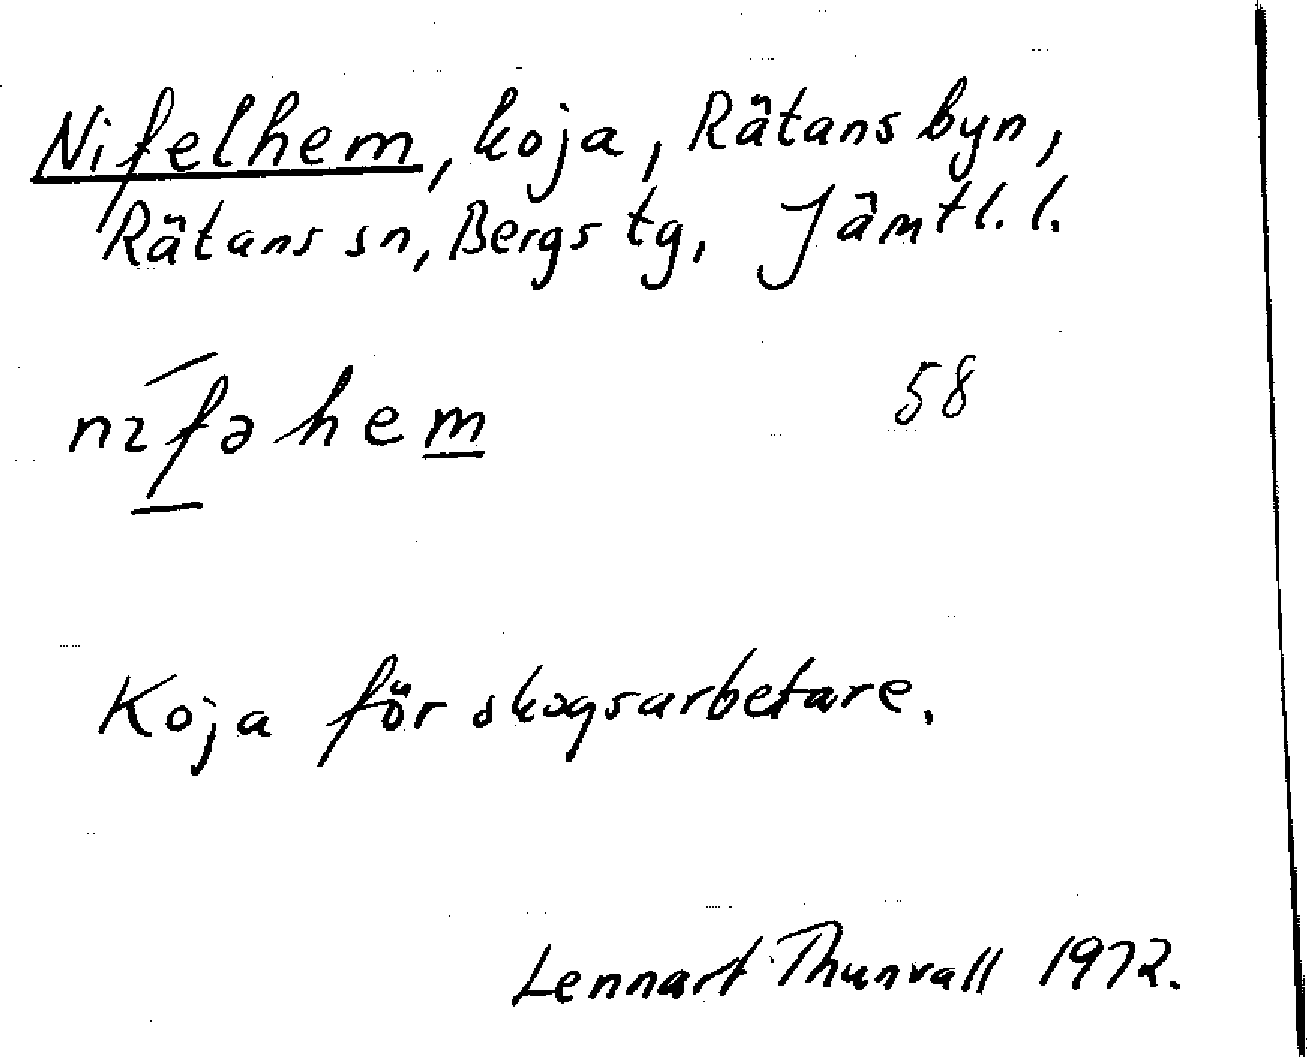 Nifelhem, koja, Rätansbyn,
Rätans sn, Bergs tg, Jämtl. l.
nɪ́fəhem 58
Koja för skogsarbetare.
Lennart Thunvall 1972.